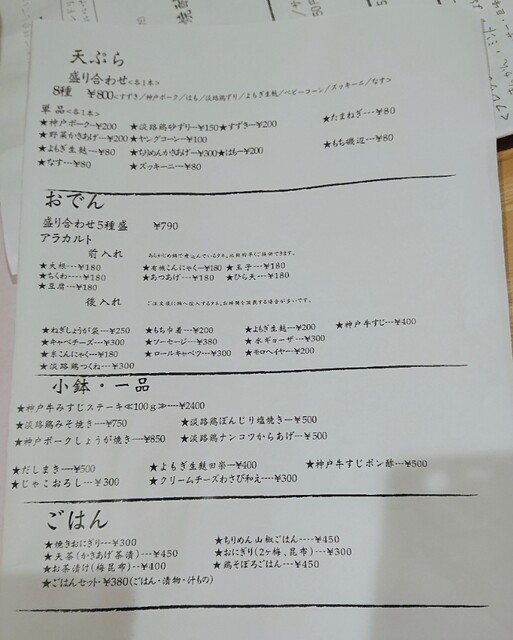 天ぷら
盛り合わせ<各1本>
8種 ¥800<すずき/神戸ポーク/はも/淡路鶏ずり/よもぎ生麩/ベビーコーン/ズッキーニ/なす>
単品<各1本>
★神戸ポーク--¥200 ★淡路鶏砂ずり--¥150★すずき--¥200 ★たまねぎ---¥80
★野菜かきあげ--¥200★ヤングコーン--¥100
★よもぎ生麩--¥80 ★ちりめんかきあげ--¥300★はも--¥200 ★もち磯辺---¥80
★なす---¥80 ★ズッキーニ--¥80
おでん
盛り合わせ5種盛 ¥790
アラカルト
前入れ
★大根---¥180 ★有機こんにゃく--¥180 ★玉子---¥180
★ちくわ----¥180 ★あつあげ---¥180 ★ひら天---¥180
★豆腐---¥180
後入れ
★ねぎしょうが袋---¥250 ★もち巾着---¥200 ★よもぎ生麩---¥200 ★神戸牛すじ---¥400
★キャベチーズ---¥300 ★ソーセージ---¥380 ★水ギョーザ---¥300
★糸こんにゃく---¥180 ★ロールキャベツ---¥300 ★モロヘイヤ---¥200
★淡路鶏つくね---¥300
小鉢・一品
★神戸牛みすじステーキ≪100g≫----¥2400
★淡路鶏みそ焼き---¥750 ★淡路鶏ぼんじり塩焼き---¥500
★神戸ポークしょうが焼き---¥850 ★淡路鶏ナンコツからあげ---¥500
★だしまき----¥500 ★よもぎ生麩田楽---¥400 ★神戸牛すじポン酢---¥500
★じゃこおろし---¥300 ★クリームチーズわさび和え----¥300
ごはん
★焼きおにぎり---¥300 ★ちりめん山椒ごはん----¥450
★天茶(かきあげ茶漬)---¥450 ★おにぎり(2ヶ梅、昆布)---¥300
★お茶漬け(梅昆布)---¥400 ★鶏そぼろごはん---¥450
★ごはんセット-¥380(ごはん・漬物・汁もの)